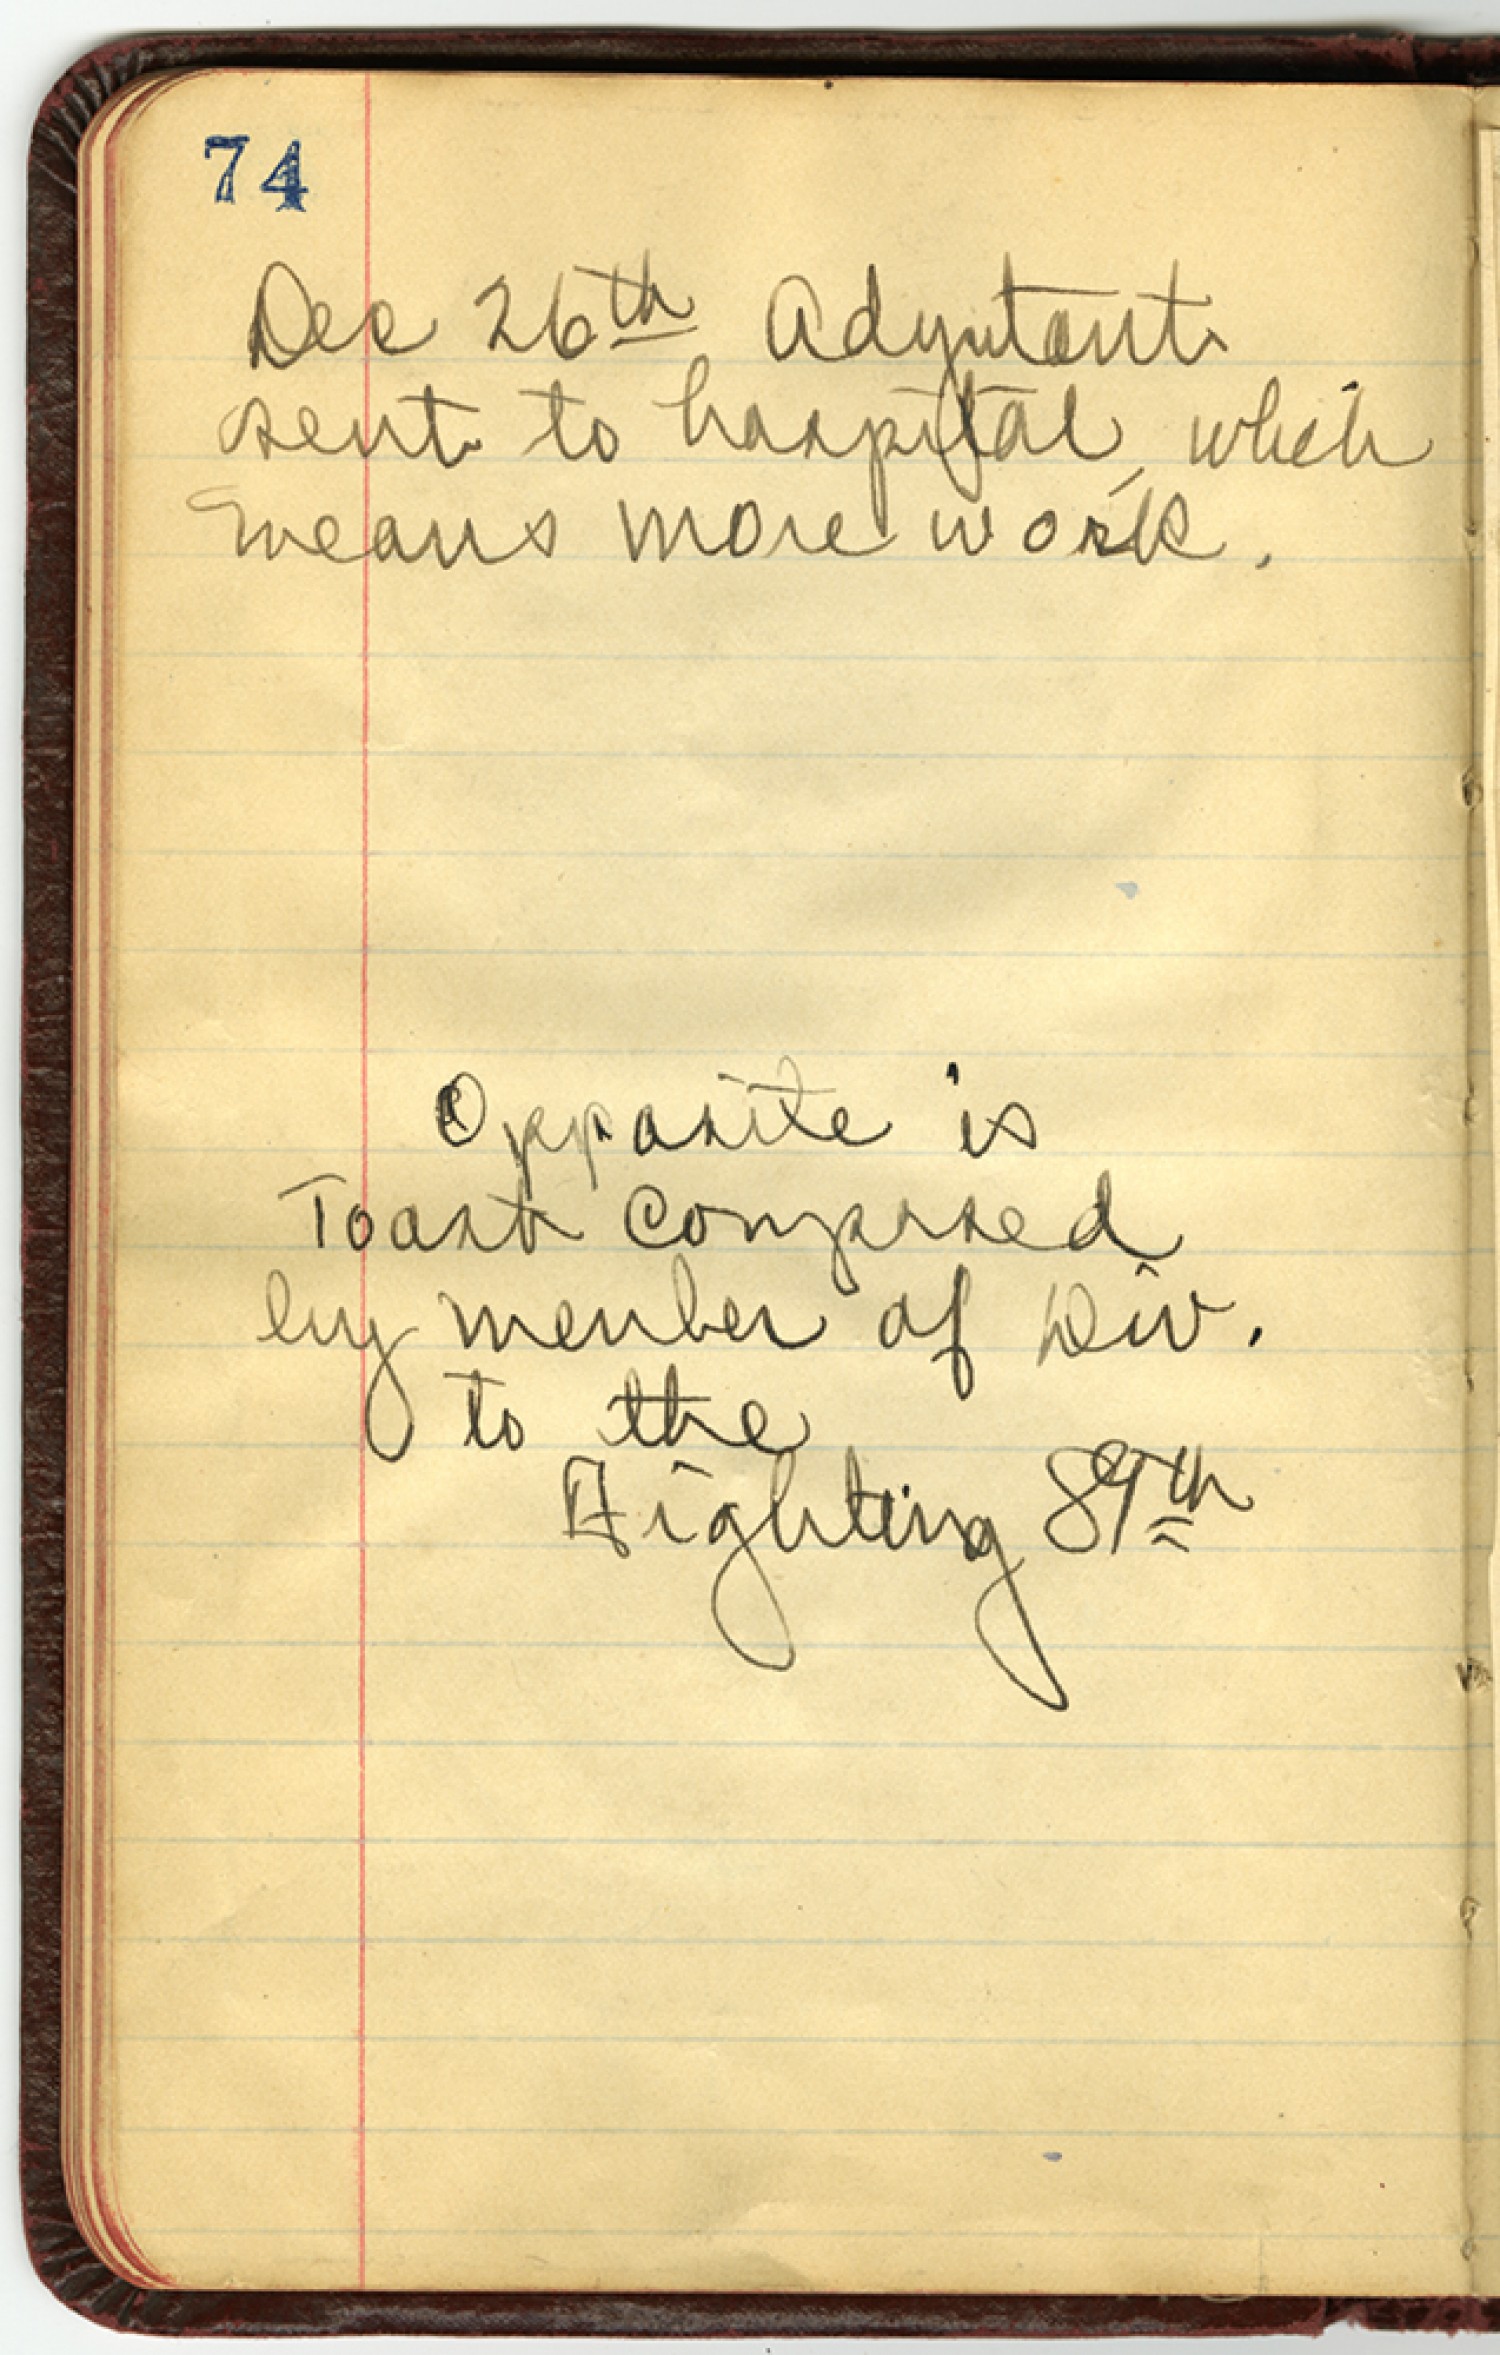 74
Dec 26th Adjutant
sent to hospital, which
means more work.
Opposite is
Toast Composed
by member of Div.
to the
Fighting 89th